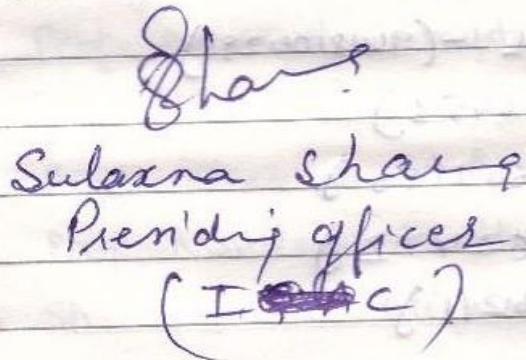 Sulaxna Sharma
Presiding Officer
(I C)